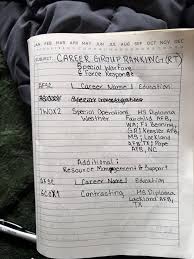 JAN FEB MAR APR MAY JUN JUL AUG SEP OCT NOV DEC
SUBJECT: CAREER GROUP RANKING (RT)
Special Warfare
& Force Respon
AFSC | Career Name | Education
7W0X2 Special Operations HS Diploma
Weather Fairchild AFB,
WA; Ft Benning,
GA; Keesler AFB
MS; Lackland
AFB, TX; Pope
AFB, NC
Additional:
Resource Management & Support
AFSC | Career Name | Education
6C0X1 Contracting HS Diploma
Lackland AFB,
TX